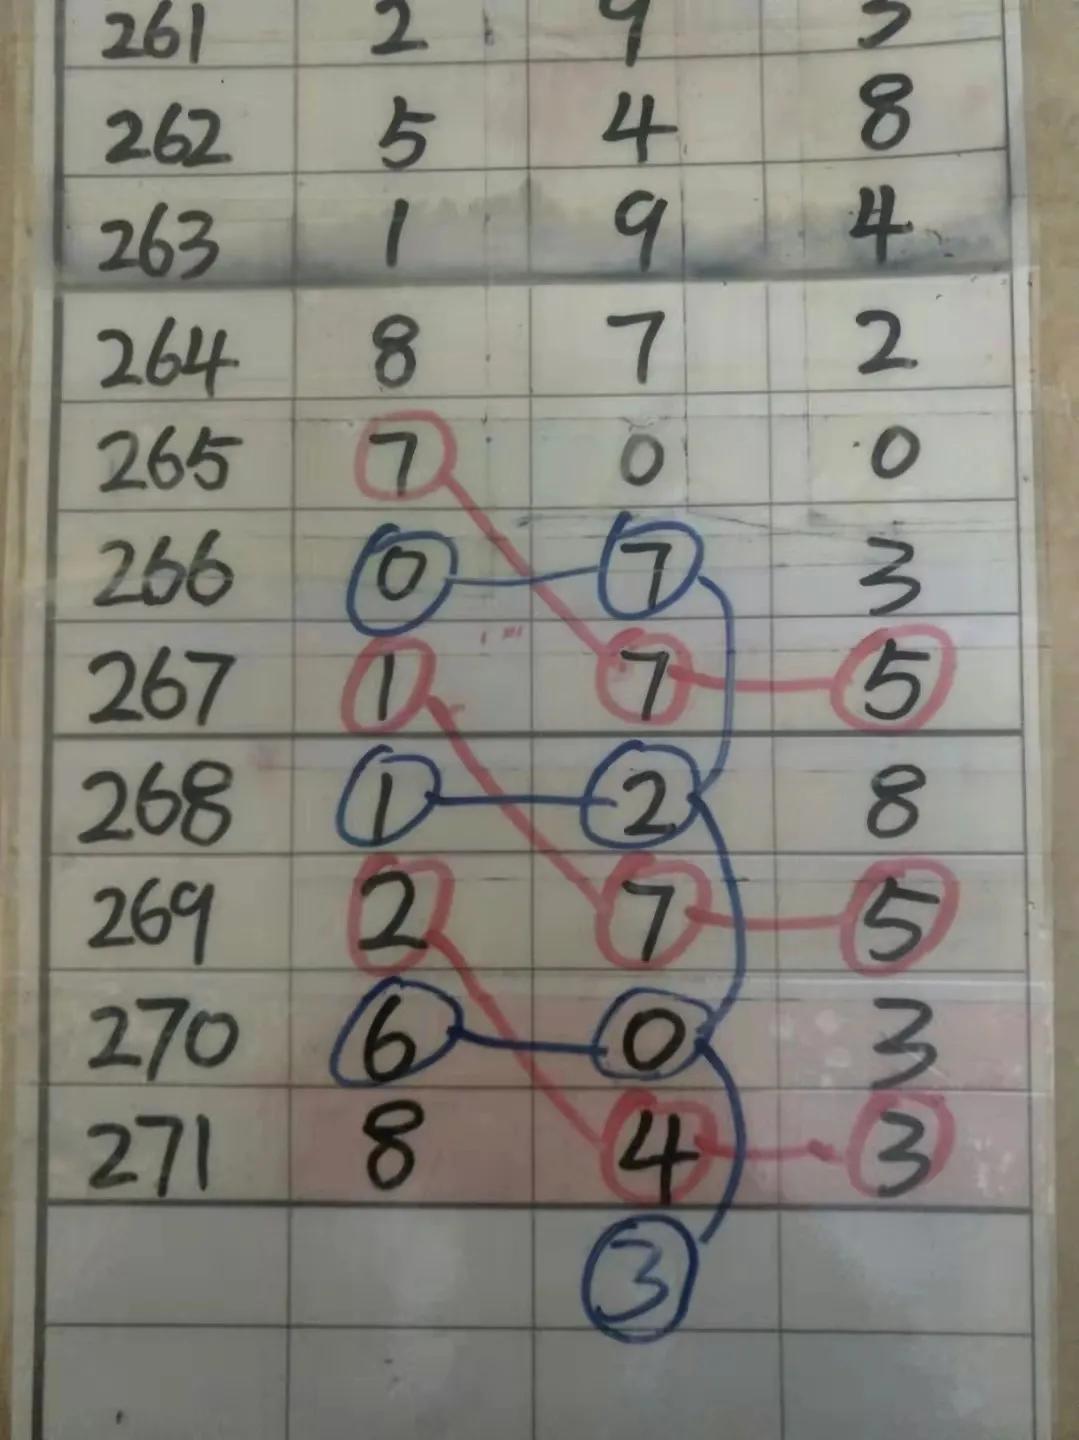 261 2 9 3
262 5 4 8
263 1 9 4
264 8 7 2
265 7 0 0
266 0 7 3
267 1 7 5
268 1 2 8
269 2 7 5
270 6 0 3
271 8 4 3
3